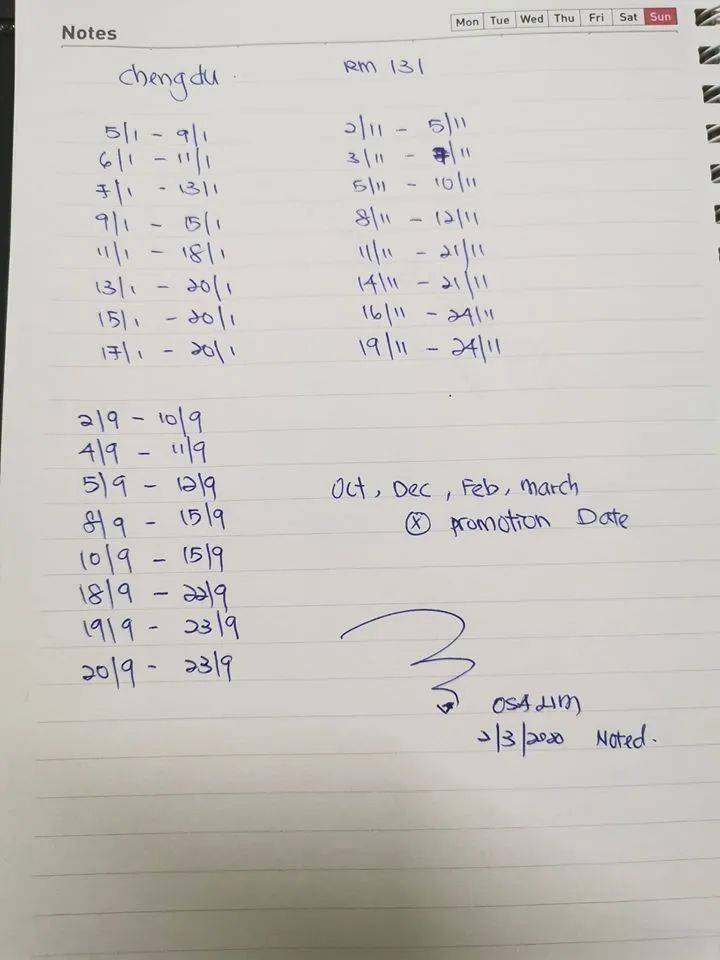 Notes
Mon Tue Wed Thu Fri Sat Sun
Chengdu
RM 131
5/1 - 9/1
6/1 - 11/1
7/1 - 13/1
9/1 - 15/1
11/1 - 18/1
13/1 - 20/1
15/1 - 20/1
17/1 - 20/1
2/11 - 5/11
3/11 - 7/11
5/11 - 10/11
8/11 - 12/11
11/11 - 21/11
14/11 - 21/11
16/11 - 24/11
19/11 - 24/11
2/9 - 10/9
4/9 - 11/9
5/9 - 12/9
8/9 - 15/9
10/9 - 15/9
18/9 - 22/9
19/9 - 23/9
20/9 - 23/9
Oct, Dec, Feb, March
ⓧ promotion Date
2/3/2020 Noted.